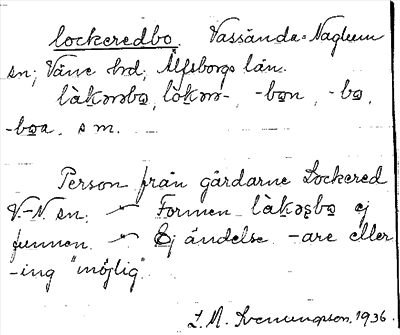 lockeredbo. Vassända-Naglum
sn; Väne hd; Älfsborgs län.
làkərəbo̤, lòkər-, -bo̤n, -bo̤,
-bo̤a. s m.
Person från gårdarne Lockered
V.-N. sn. — Formen làkəs̤bo̤ ej
funnen. — Ej ändelse -are eller
-ing "möjlig".
L. A. Svenungsson. 1936.